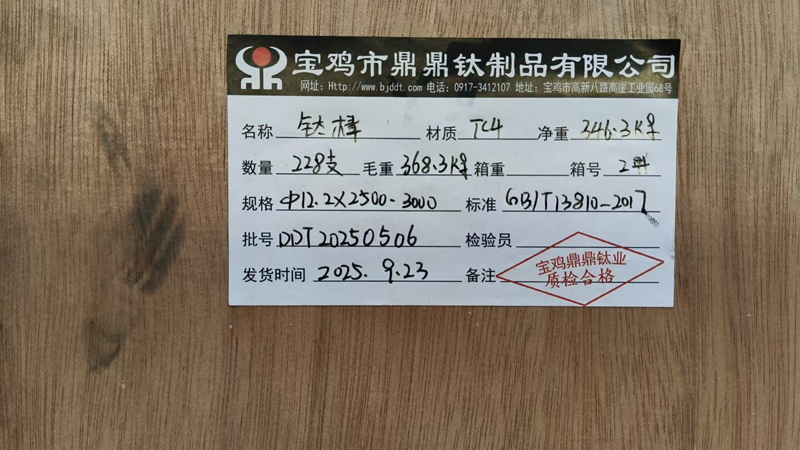 宝鸡市鼎鼎钛制品有限公司
网址:Http://www.bjddt.com 电话:0917-3412107 地址:宝鸡市高新八路高崖工业园68号
名称 钛棒 材质 TC4 净重 346.3Kg
数量 228支 毛重 368.3Kg 箱重 箱号 2#
规格 Φ12.2X2500-3000 标准 GB/T13810-2017
批号 DDT20250506 检验员
发货时间 2025.9.23 备注
宝鸡鼎鼎钛业
质检合格